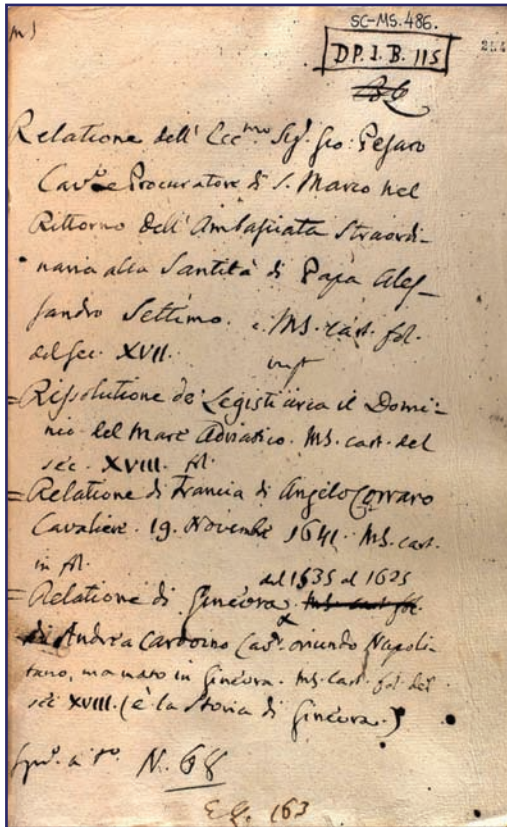 ms
SC-MS. 486.
DP. I. B. 115
Relatione dell' Ecc.mo Sig.r Gio: Pesaro
Cav.r e Procuratore di S. Marco nel
Rittorno dell' Ambasciata straordi-
naria alla Santità di Papa Ales-
sandro Settimo. MS. cart. fol.
del sec. XVII.
= Rissolutione de' Legisti circa il Domi-
nio del Mare Adriatico. MS. cart. del
sec. XVIII. fol.
= Relatione di Francia di Angelo Corraro
Cavaliere. 19. Novembre 1641. MS. cart.
in fol.
dal 1535 al 1625
= Relatione di Ginevra MS. cart. fol.
di Andrea Cardoino Cav.r oriundo Napoli-
tano, ma nato in Ginevra. MS. cart. fol. del
sec XVIII. (è la Storia di Ginevra.)
N. 68
163